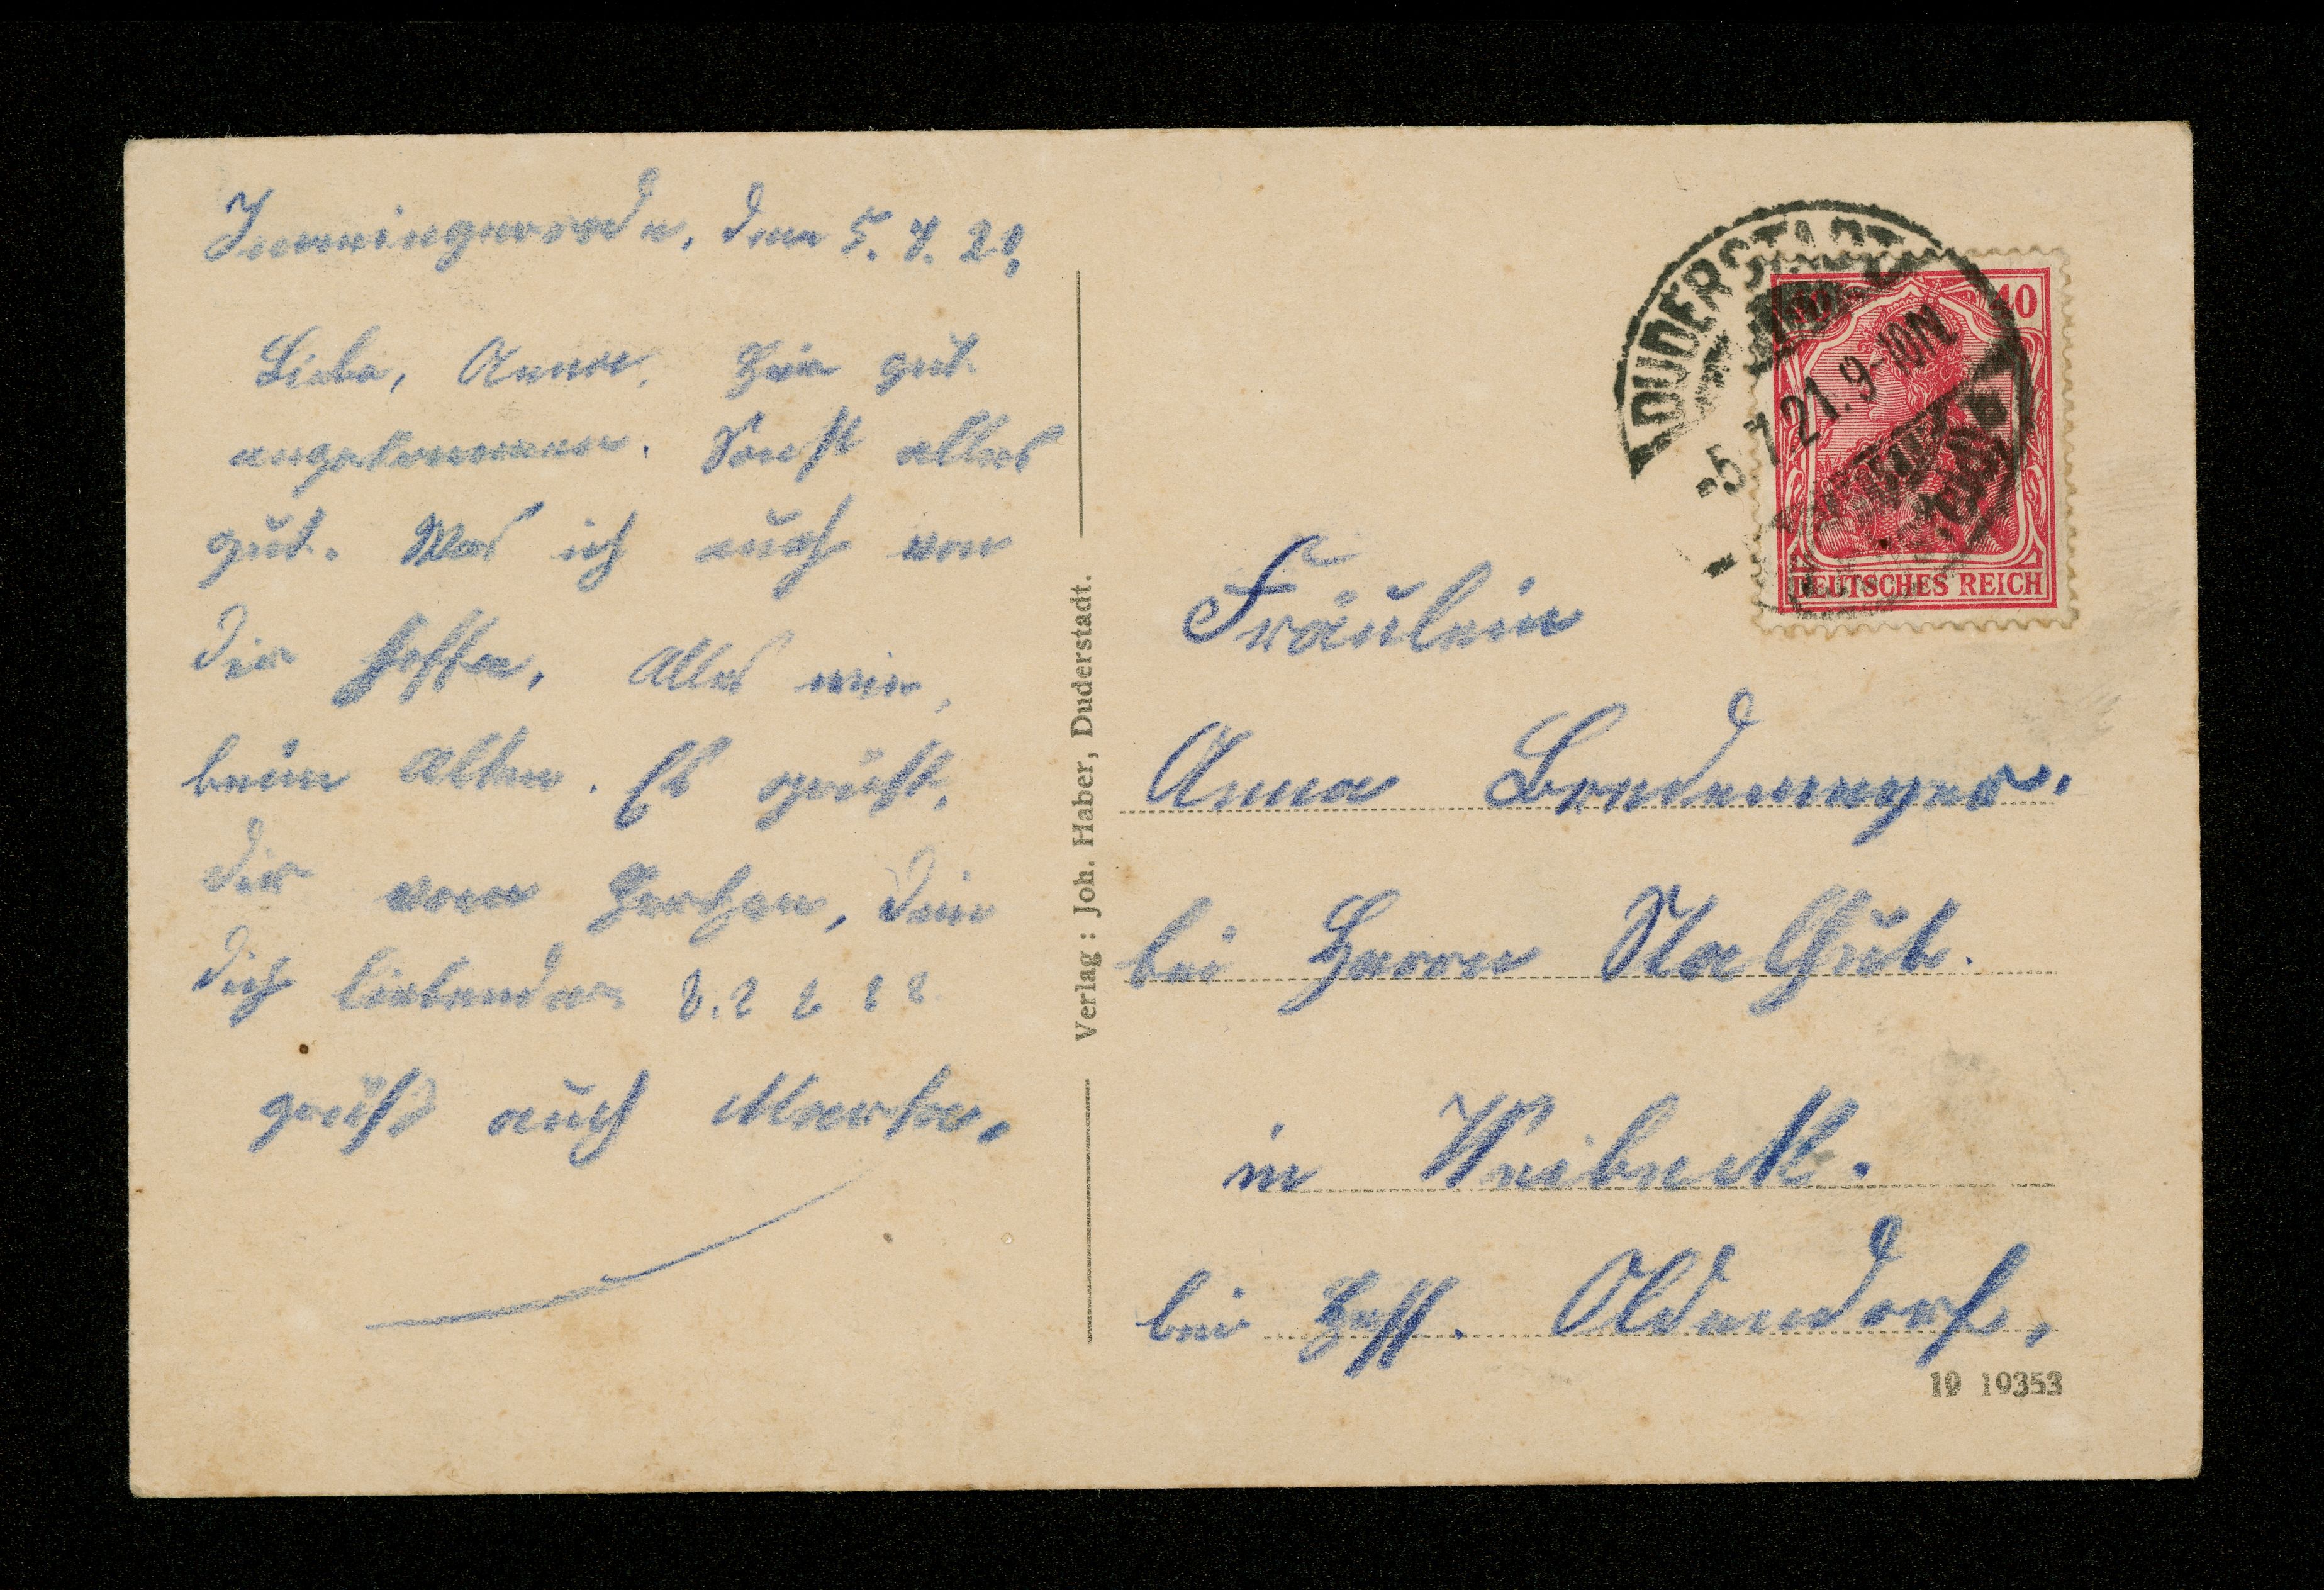 Immingerode, den 5. 7. 21.
Liebe, Anna. Hin gut
angekommen. Sonst alles
gut. Was ich auch von
dir hoffe. Alles wie,
beim alten. Es grüßt,
dir vom Herzen, dein
dich liebender
grüß auch Martha.
Verlag : Joh. Haber, Duderstadt.
DUDERSTADT
-5 7 21. 9-10 N
40
DEUTSCHES REICH
Fräulein
Anna Bredemeyer.
bei Herrn
in Weibeck.
bei Hess. Oldendorf.
19 19353